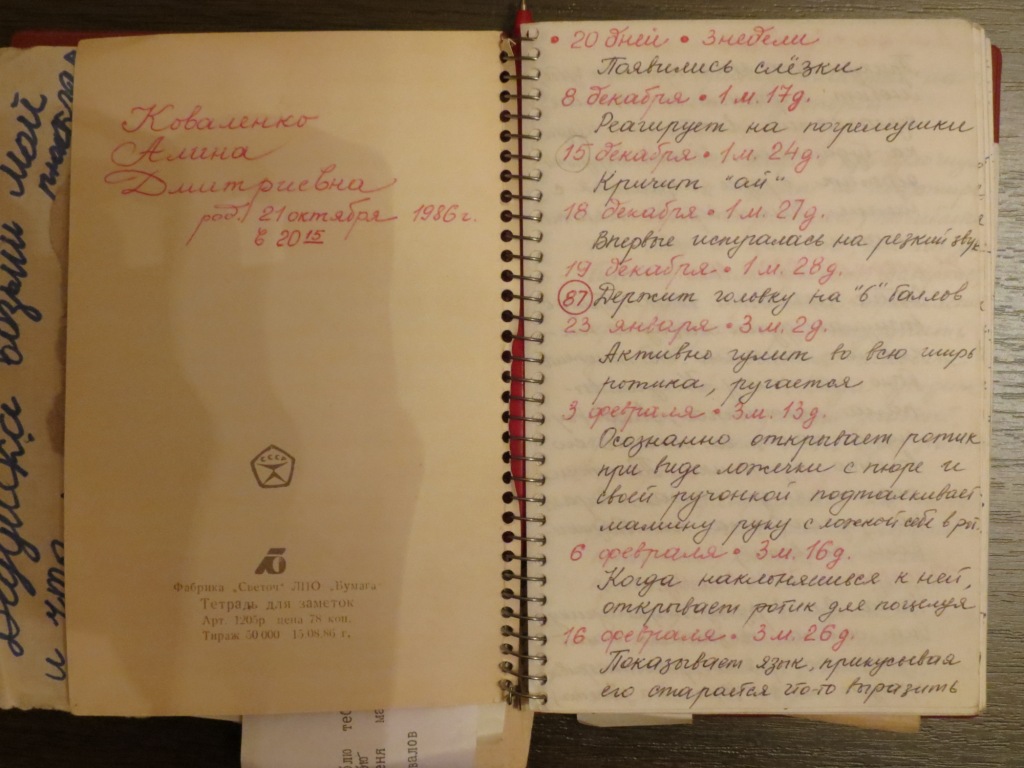 Дедушка возьми мой
и что
Коваленко
Алина
Дмитриевна
род. 21 октября 1986 г.
в 20 15
СССР
Фабрика „Светоч“ ЛПО „Бумага“
Тетрадь для заметок
Арт. 1205р цена 78 коп.
Тираж 50 000 15.08.86 г.
• 20 дней • 3 недели
Появились слёзки
8 декабря • 1 м. 17д.
Реагирует на погремушки
15 декабря • 1 м. 24д.
Кричит "ай"
18 декабря • 1 м. 27д.
Впервые испугалась на резкий звук
19 декабря • 1 м. 28д.
87 Держит головку на "6" баллов
23 января • 3 м. 2д.
Активно гулит во всю ширь
ротика, ругается
3 февраля • 3 м. 13д.
Осознанно открывает ротик
при виде ложечки с пюре и
своей ручонкой подталкивает
мамину руку с ложкой себе в рот.
6 февраля • 3 м. 16д.
Когда наклоняешься к ней,
открывает ротик для поцелуя
16 февраля • 3 м. 26д.
Показывает язык, прикусывая
его старается что-то выразить